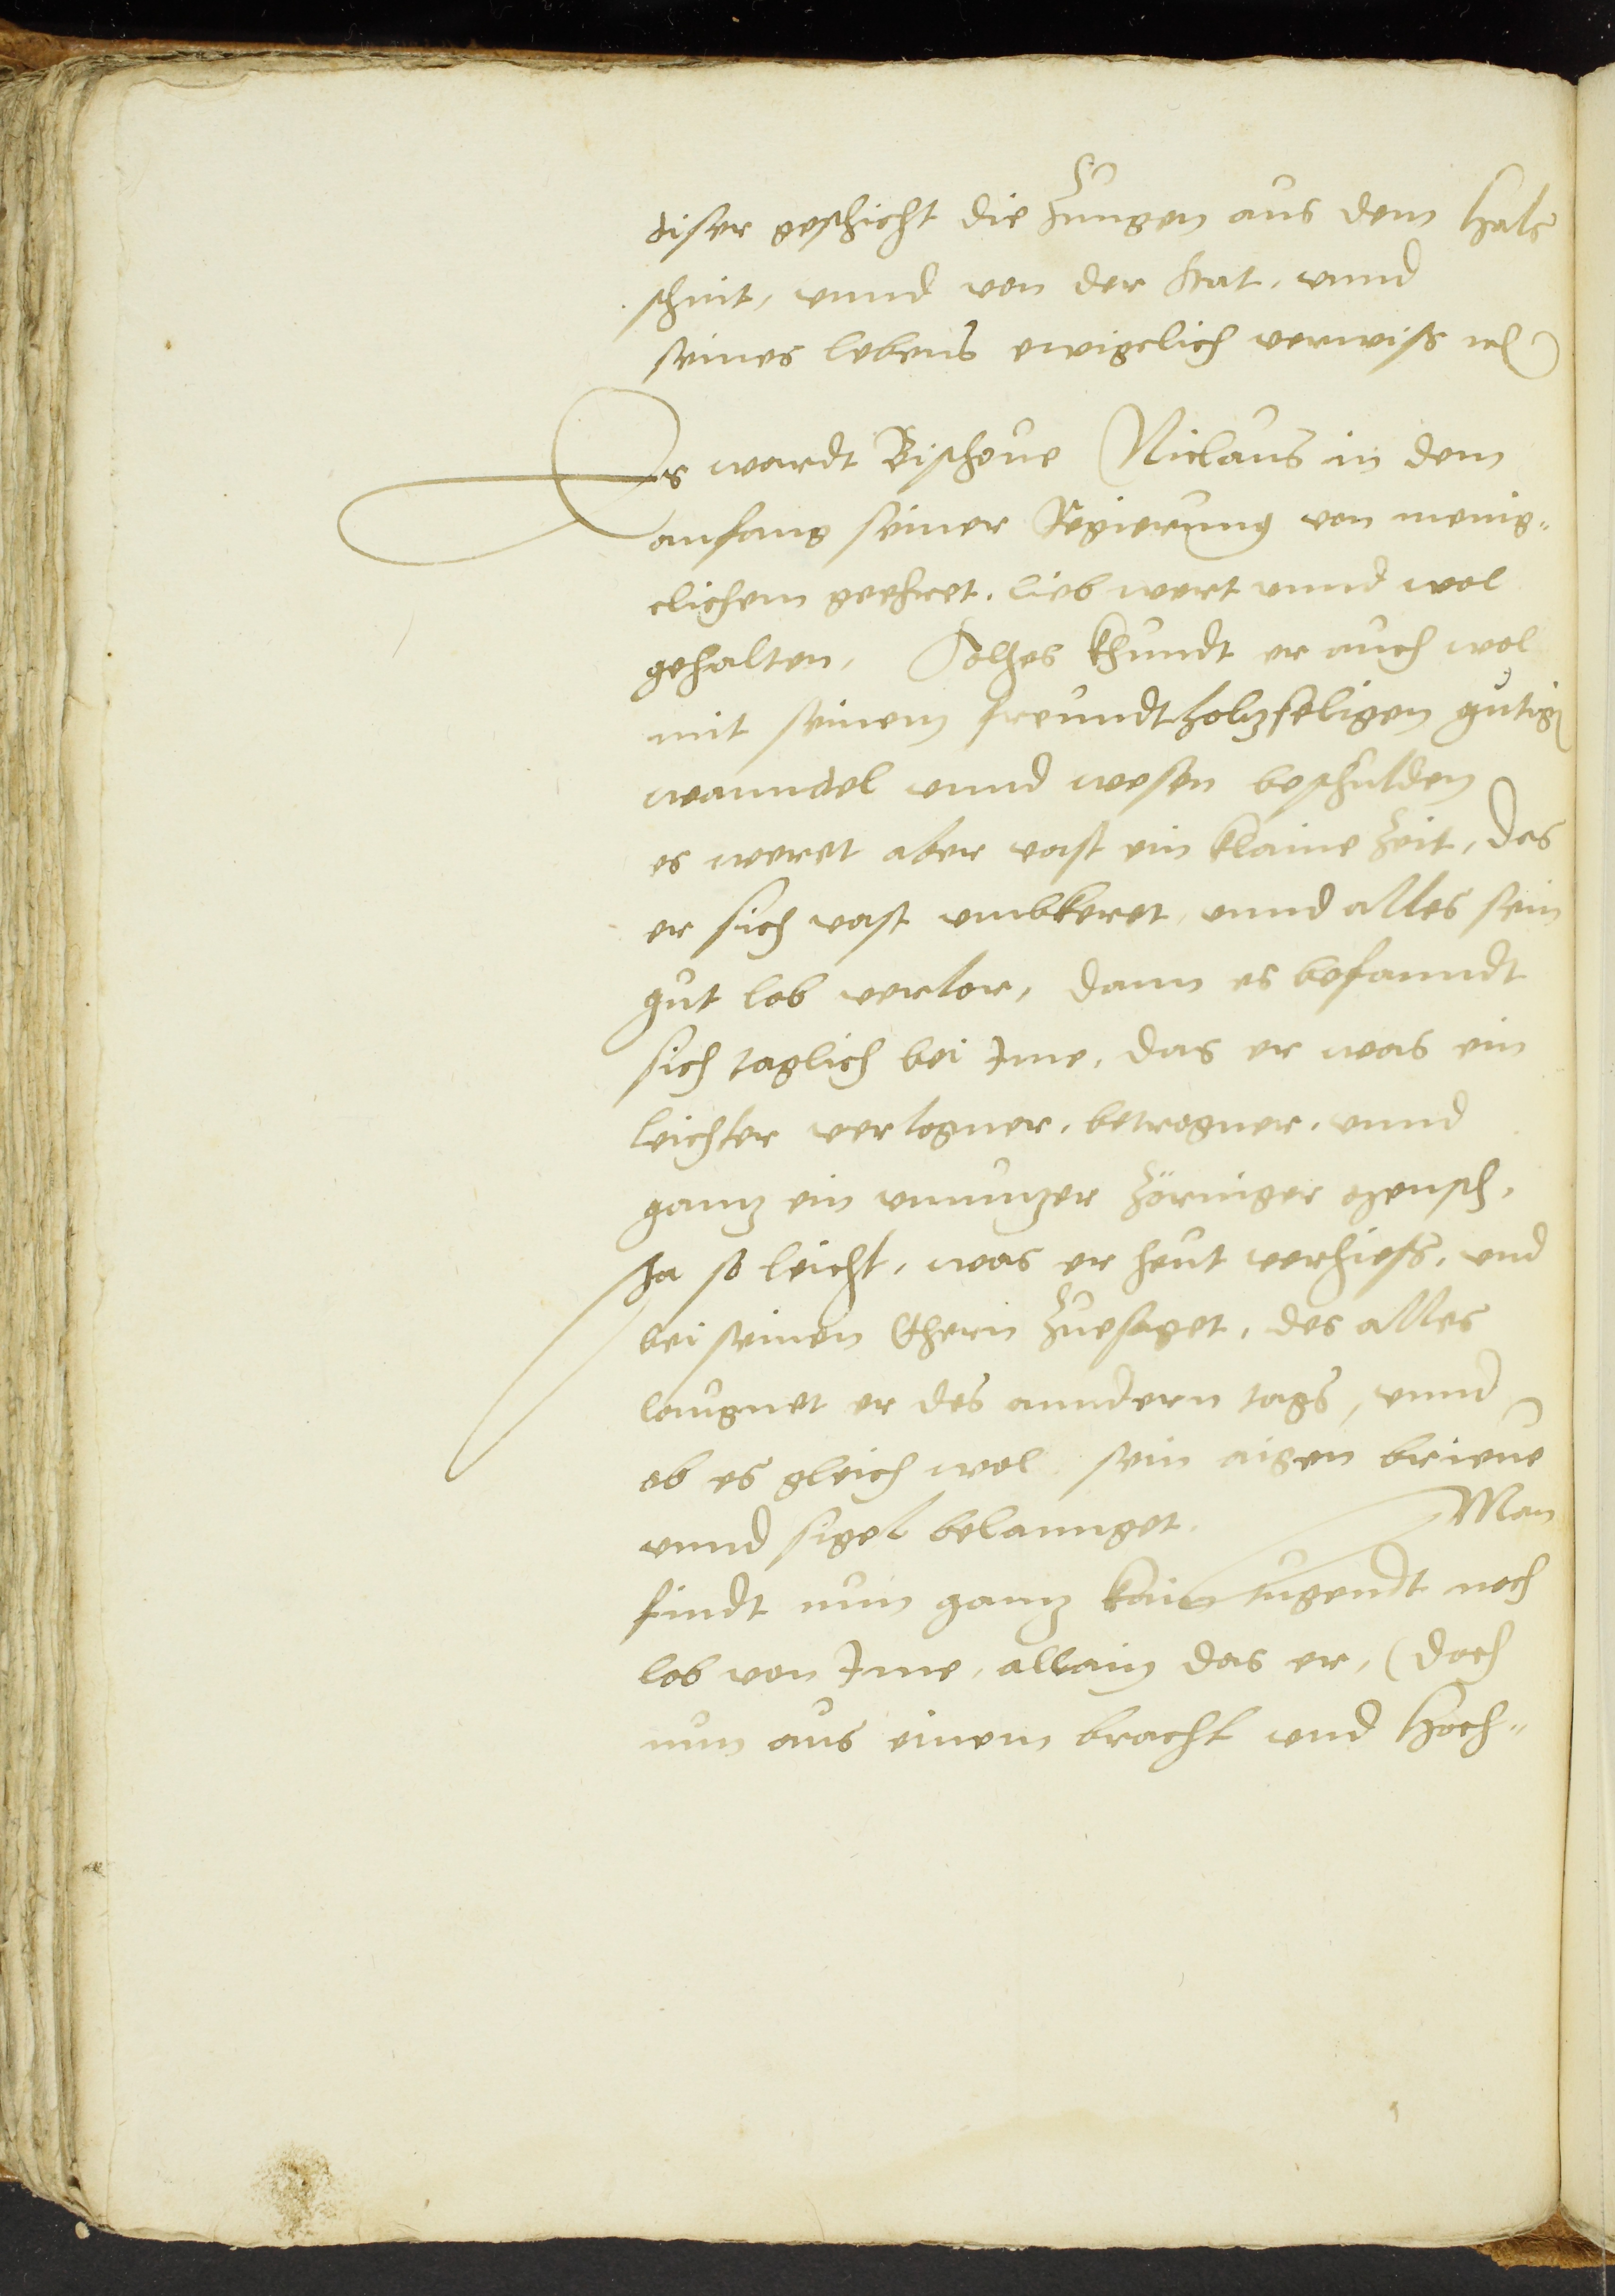 diser geschicht die Zungen aus dem Hals
schnit, unnd von der stat, unnd
seines lebens ewigclich verwiss etc
Es wardt Bischove Niclaus in dem
anfang seiner Regierung von menig-
clichem geehret, lieb wert unnd wol
gehalten, Solhes khundt er auch wol
mit seinem freundtholtzseligen gutign
wanndel unnd wesen beschulden
es weret aber vast ein klaine Zeit, das
er sich vast umbkeret, unnd alles sein
gut lob verlor, dann es befanndt
sich taglich bei Ime, das er was ein
leichter verlogner, betrogner, unnd
gantz ein unnutzer Zörniger mensch,
Ja so leicht, was er heut verhiess, und
bei seinen Ehern Zuesaget, des alles
laugnet er des anndern tags, unnd
ob es gleich wol sein aigen brieve
unnd sigel belannget. Man
findt nun gantz kain tugendt noch
lob von Ime, allain das er, (doch
nun aus einem bracht und Hoch-